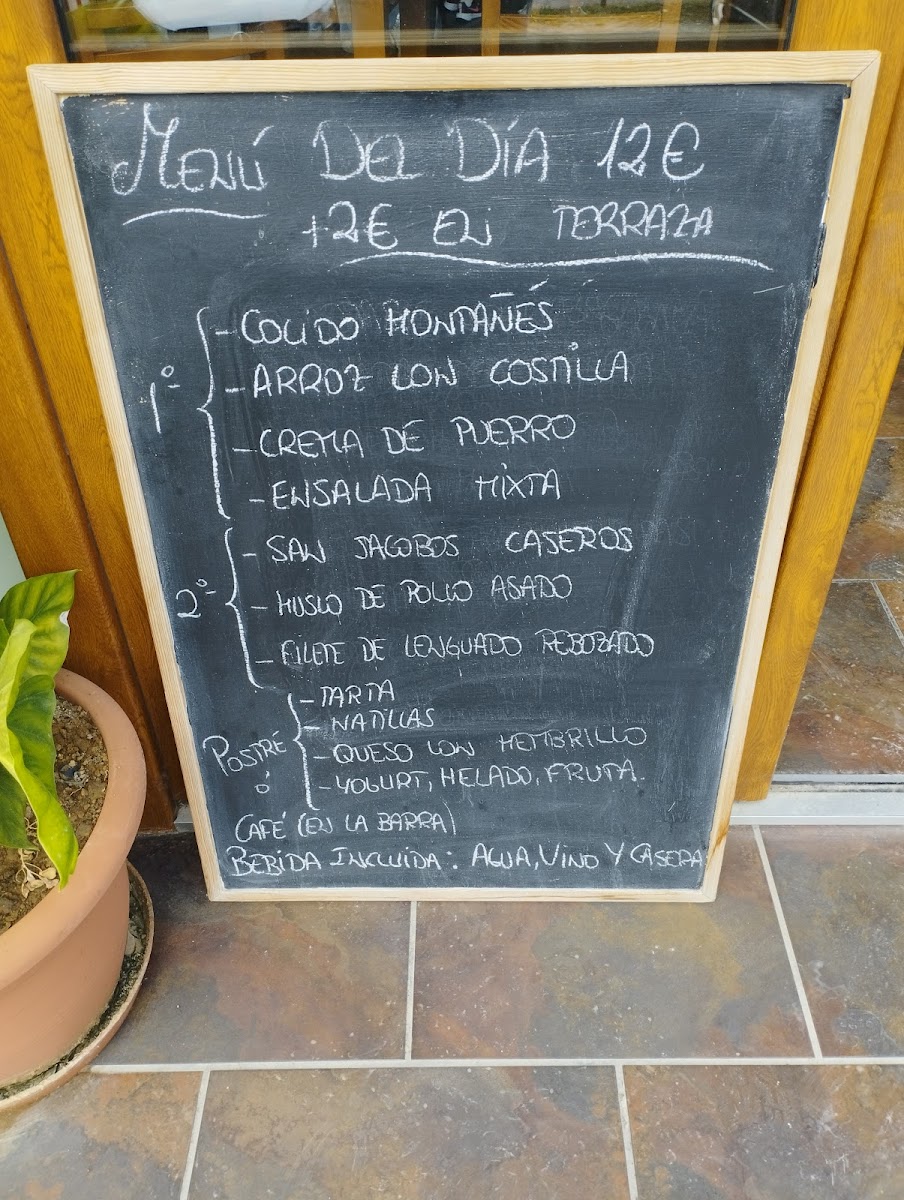 MENÚ DEL DÍA 12€
+2€ EN TERRAZA
1º-
-COCIDO MONTAÑÉS
-ARROZ CON COSTILLA
-CREMA DE PUERRO
-ENSALADA MIXTA
2º-
-SAN JACOBOS CASEROS
-MUSLO DE POLLO ASADO
-FILETE DE LENGUADO REBOZADO
POSTRE
-TARTA
-NATILLAS
-QUESO CON MEMBRILLO
-YOGURT, HELADO, FRUTA.
ó
CAFÉ (EN LA BARRA)
BEBIDA INCLUIDA: AGUA, VINO Y CASERA